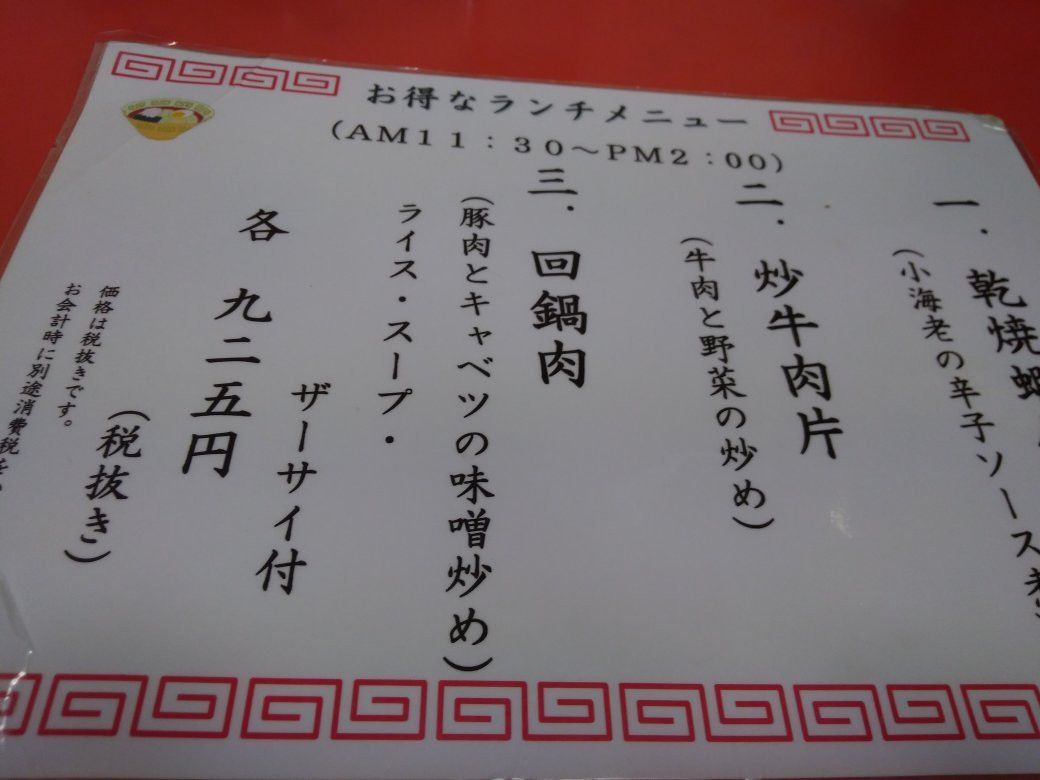 お得なランチメニュー
(AM11：30～PM2：00)
一．乾焼
(小海老の辛子ソース
二．炒牛肉片
(牛肉と野菜の炒め)
三．回鍋肉
(豚肉とキャベツの味噌炒め)
ライス・スープ・
ザーサイ付
各 九二五円
(税抜き)
価格は税抜きです。
お会計時に別途消費税を